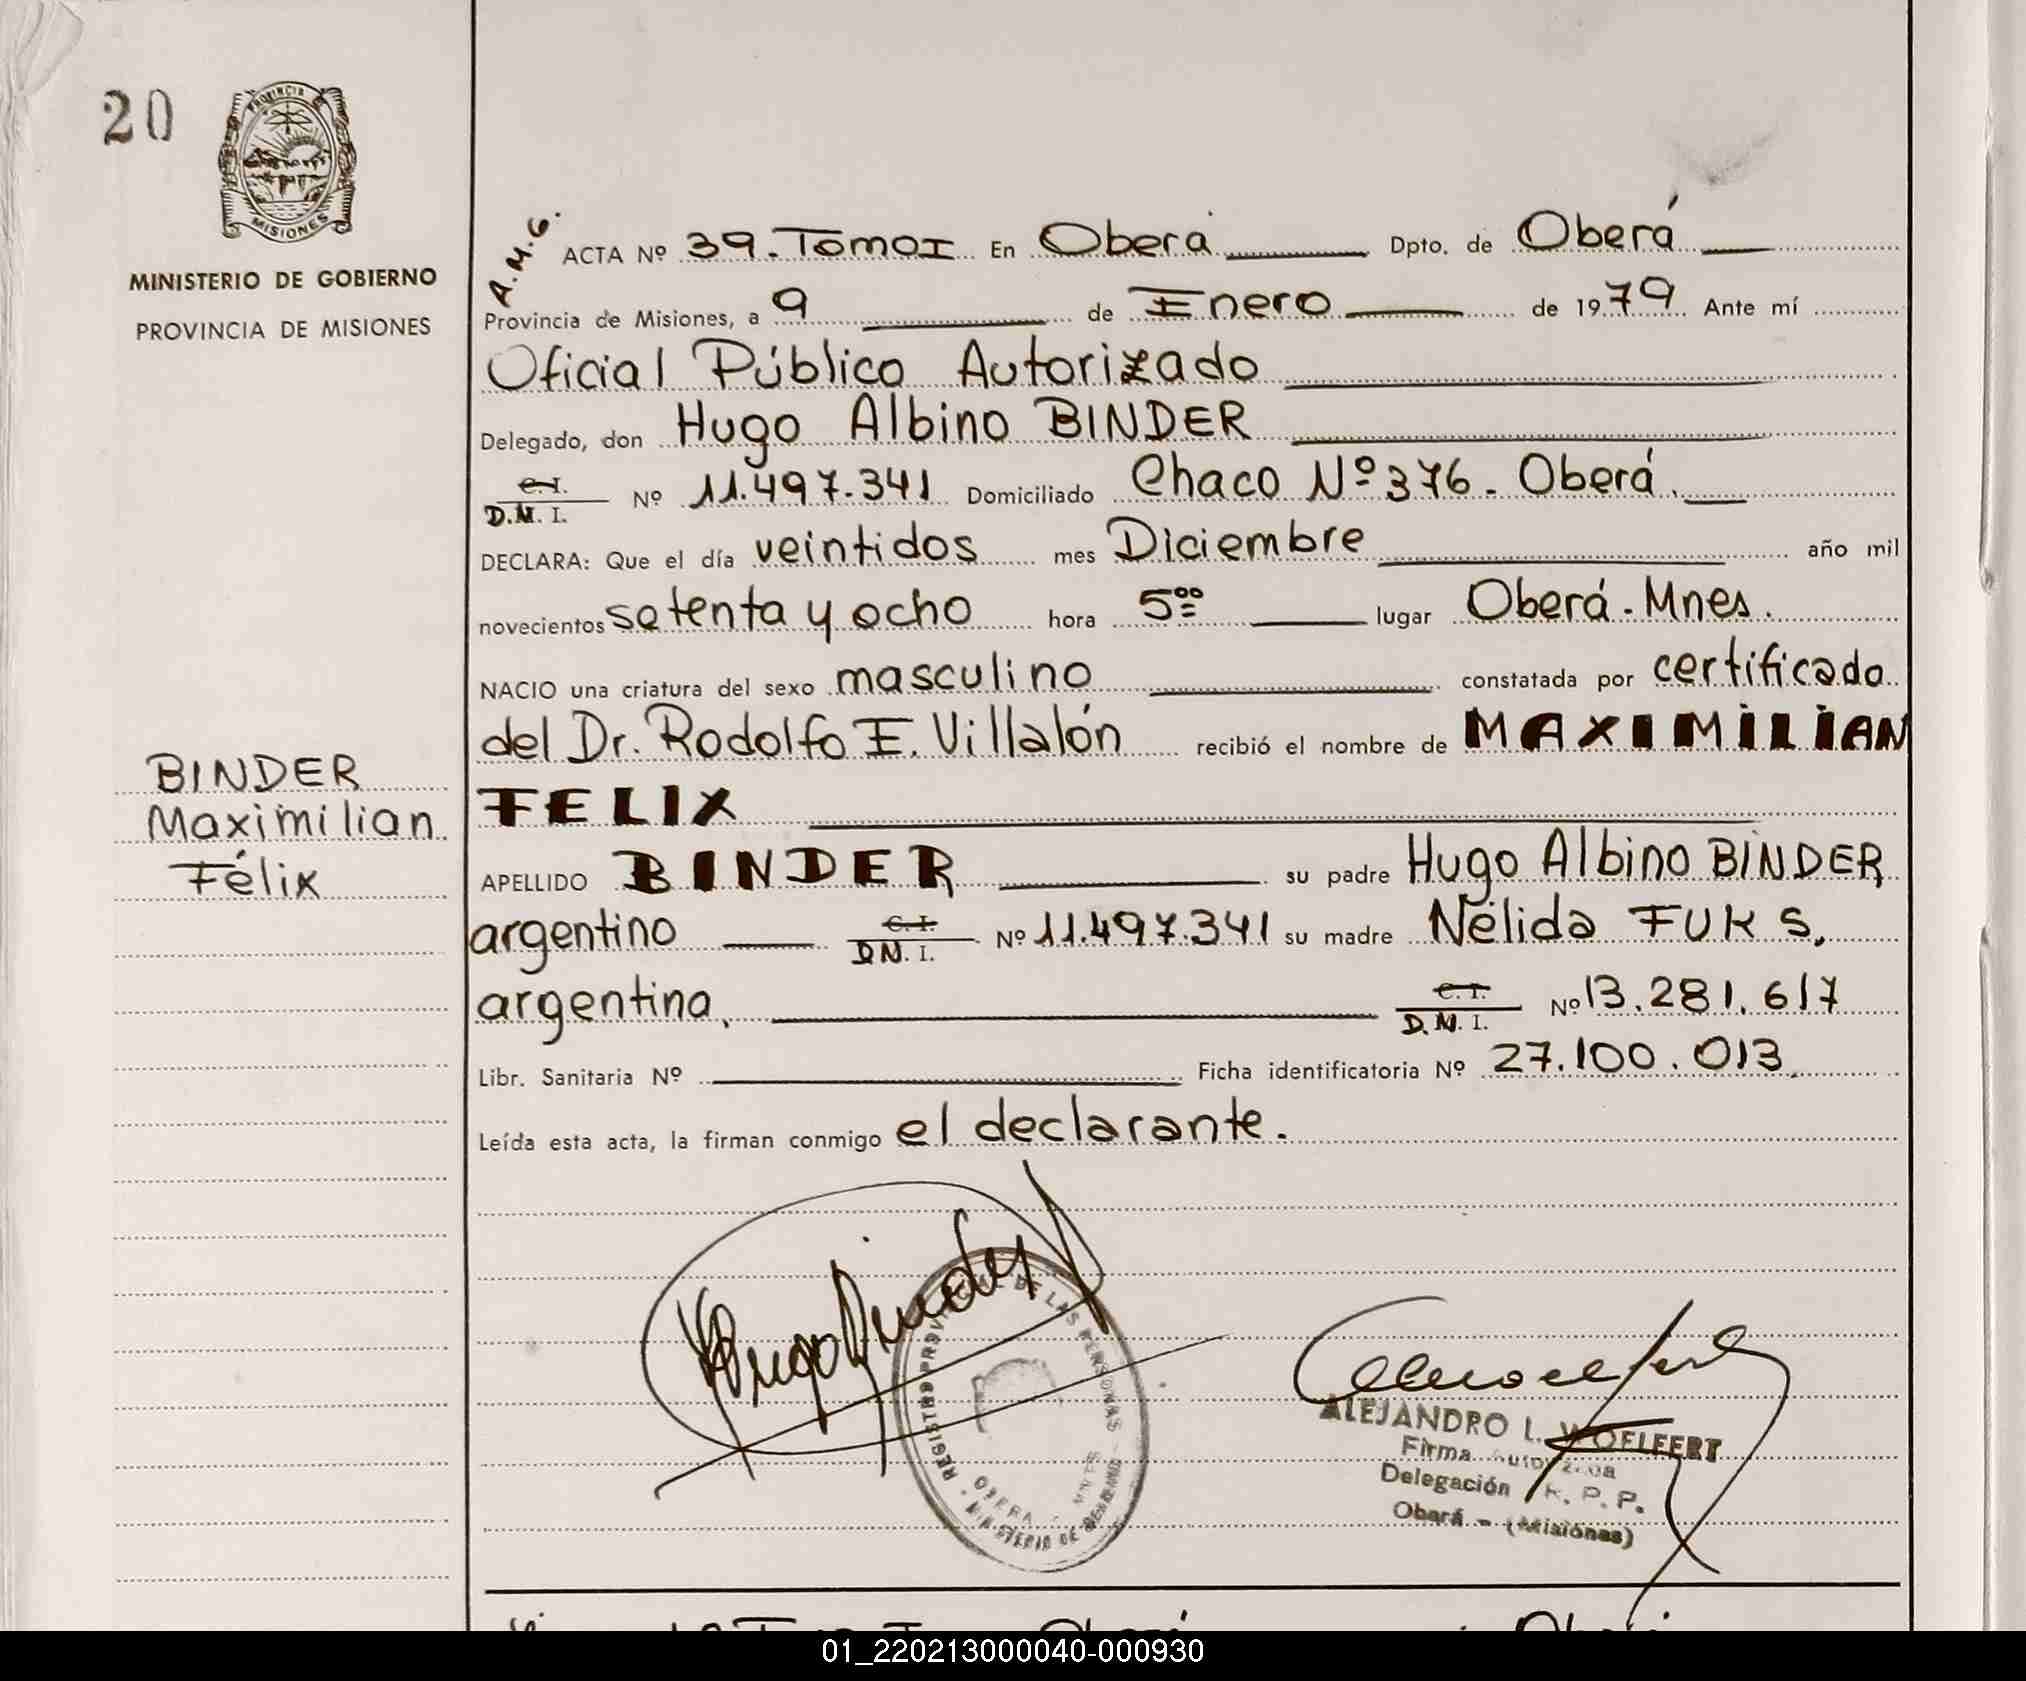 20
PROVINCIA DE
MISIONES
MINISTERIO DE GOBIERNO
PROVINCIA DE MISIONES
A.M.G.
ACTA Nº 39. Tomo I En Oberá Dpto. de Oberá
Provincia de Misiones, a 9 de Enero de 1979 Ante mí
Oficial Público Autorizado
Delegado, don Hugo Albino BINDER
C.I.
D.N.I. Nº 11.497.341 Domiciliado Chaco Nº 376. Oberá.
DECLARA: Que el día veintidos mes Diciembre año mil
novecientos setenta y ocho hora 5 00 lugar Oberá. Mnes.
NACIO una criatura del sexo masculino constatada por certificado
del Dr. Rodolfo E. Villalón recibió el nombre de MAXIMILIAN
FELIX
BINDER
Maximilian
Félix
APELLIDO BINDER su padre Hugo Albino BINDER
argentino C.I. D.N.I. Nº 11.497.341 su madre Nélida FUKS,
argentina, C.I. D.N.I. Nº 13.281.617
Libr. Sanitaria Nº Ficha identificatoria Nº 27.100.013.
Leída esta acta, la firman conmigo el declarante.
Hugo Binder
REGISTRO PROVINCIAL DE LAS PERSONAS
MINISTERIO DE GOBIERNO
OBERA - MNES
ALEJANDRO L. WOELFERT
Firma Autorizada
Delegación R. P. P.
Oberá - (Misiones)
01_220213000040-000930